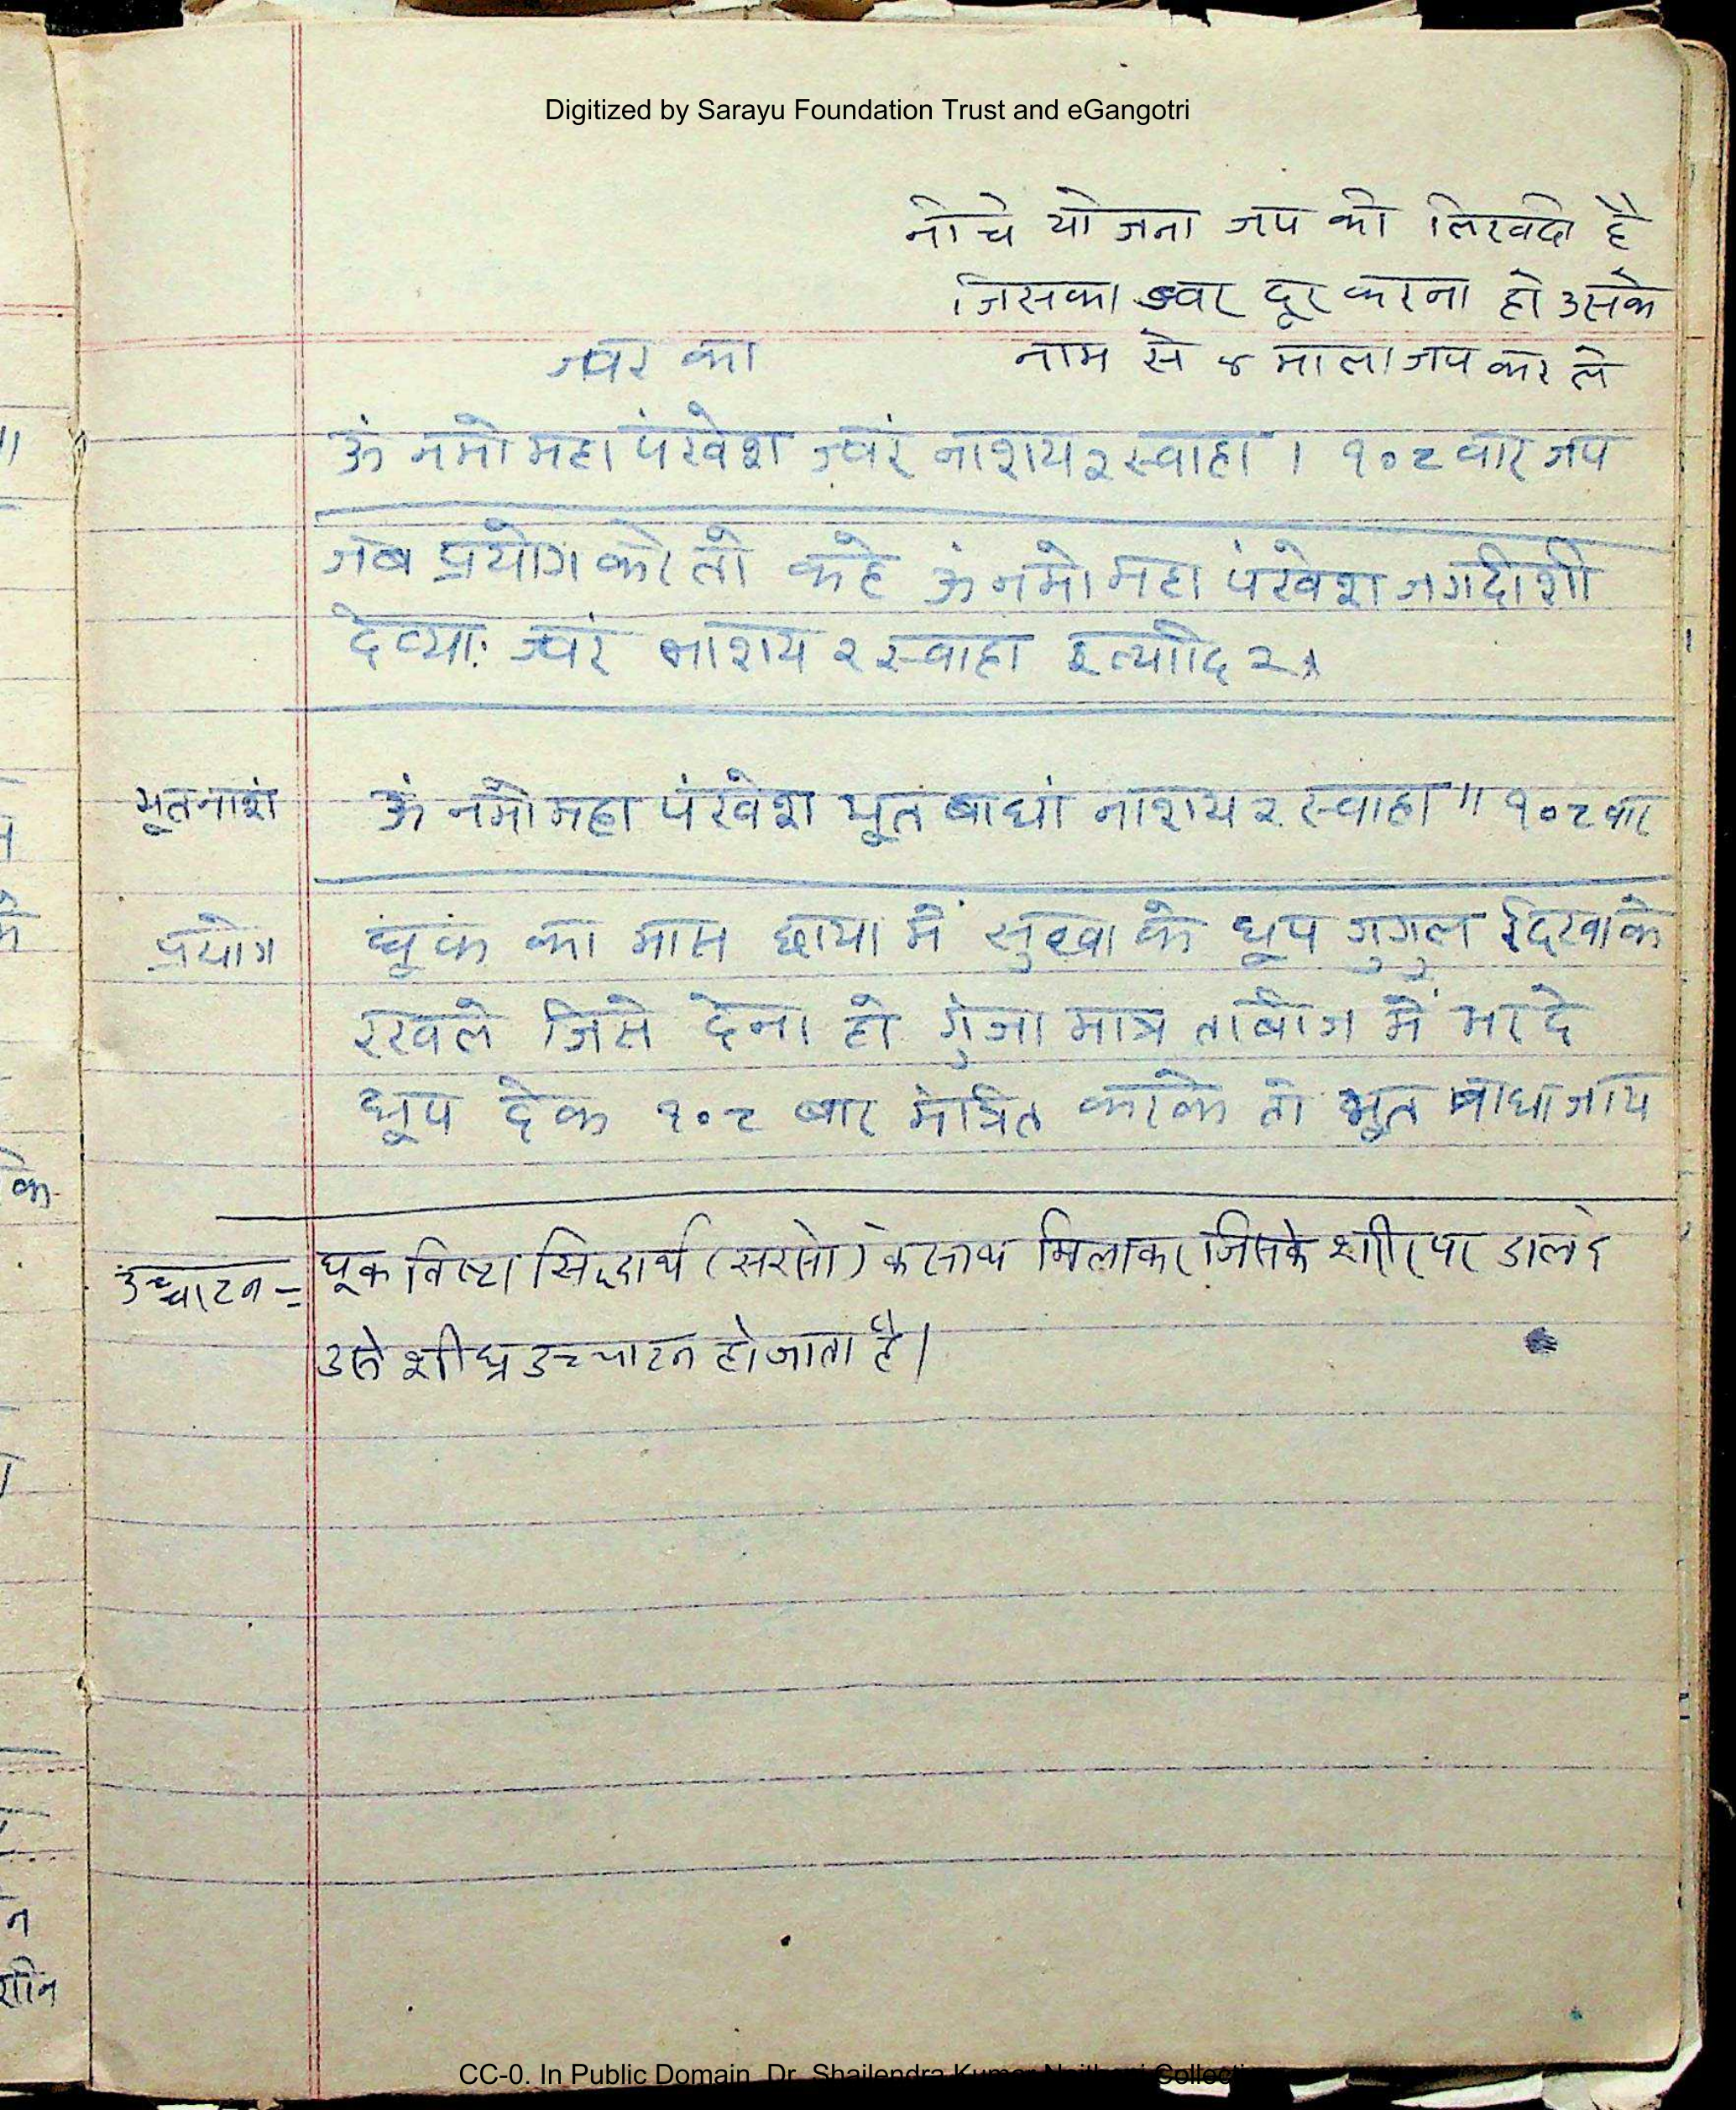 Digitized by Sarayu Foundation Trust and eGangotri
नीचे योजना जप की लिखदी है
जिसका ज्वर दूर करना हो उसके
नाम से ४ माला जप कर ले
ज्वर का
ॐ नमो महा पंखेश ज्वरं नाशय २ स्वाहा । १०८ वार जप
जब प्रयोग करे तो कहे ॐ नमो महा पंखेश जगदीशी
देव्याः ज्वरं नाशय २ स्वाहा इत्यादि २
भूतनाशं ॐ नमो महा पंखेश भूत बाधां नाशय २ स्वाहा ॥ १०८ वार
प्रयोग घूक का मास छाया में सुखा के धूप गुगुल दिखाके
रखले जिसे देना हो गुंजा मात्र ताबीज में भर दे
धूप देक १०८ बार मंत्रित करके तो भूत बाधा जाय
उच्चाटन = घूक विष्टा सिद्धार्थ (सरसो) के साथ मिलाकर जिसके शरीर पर डालदे
उसे शीघ्र उच्चाटन हो जाता है।
CC-0. In Public Domain. Dr. Shailendra Kumar